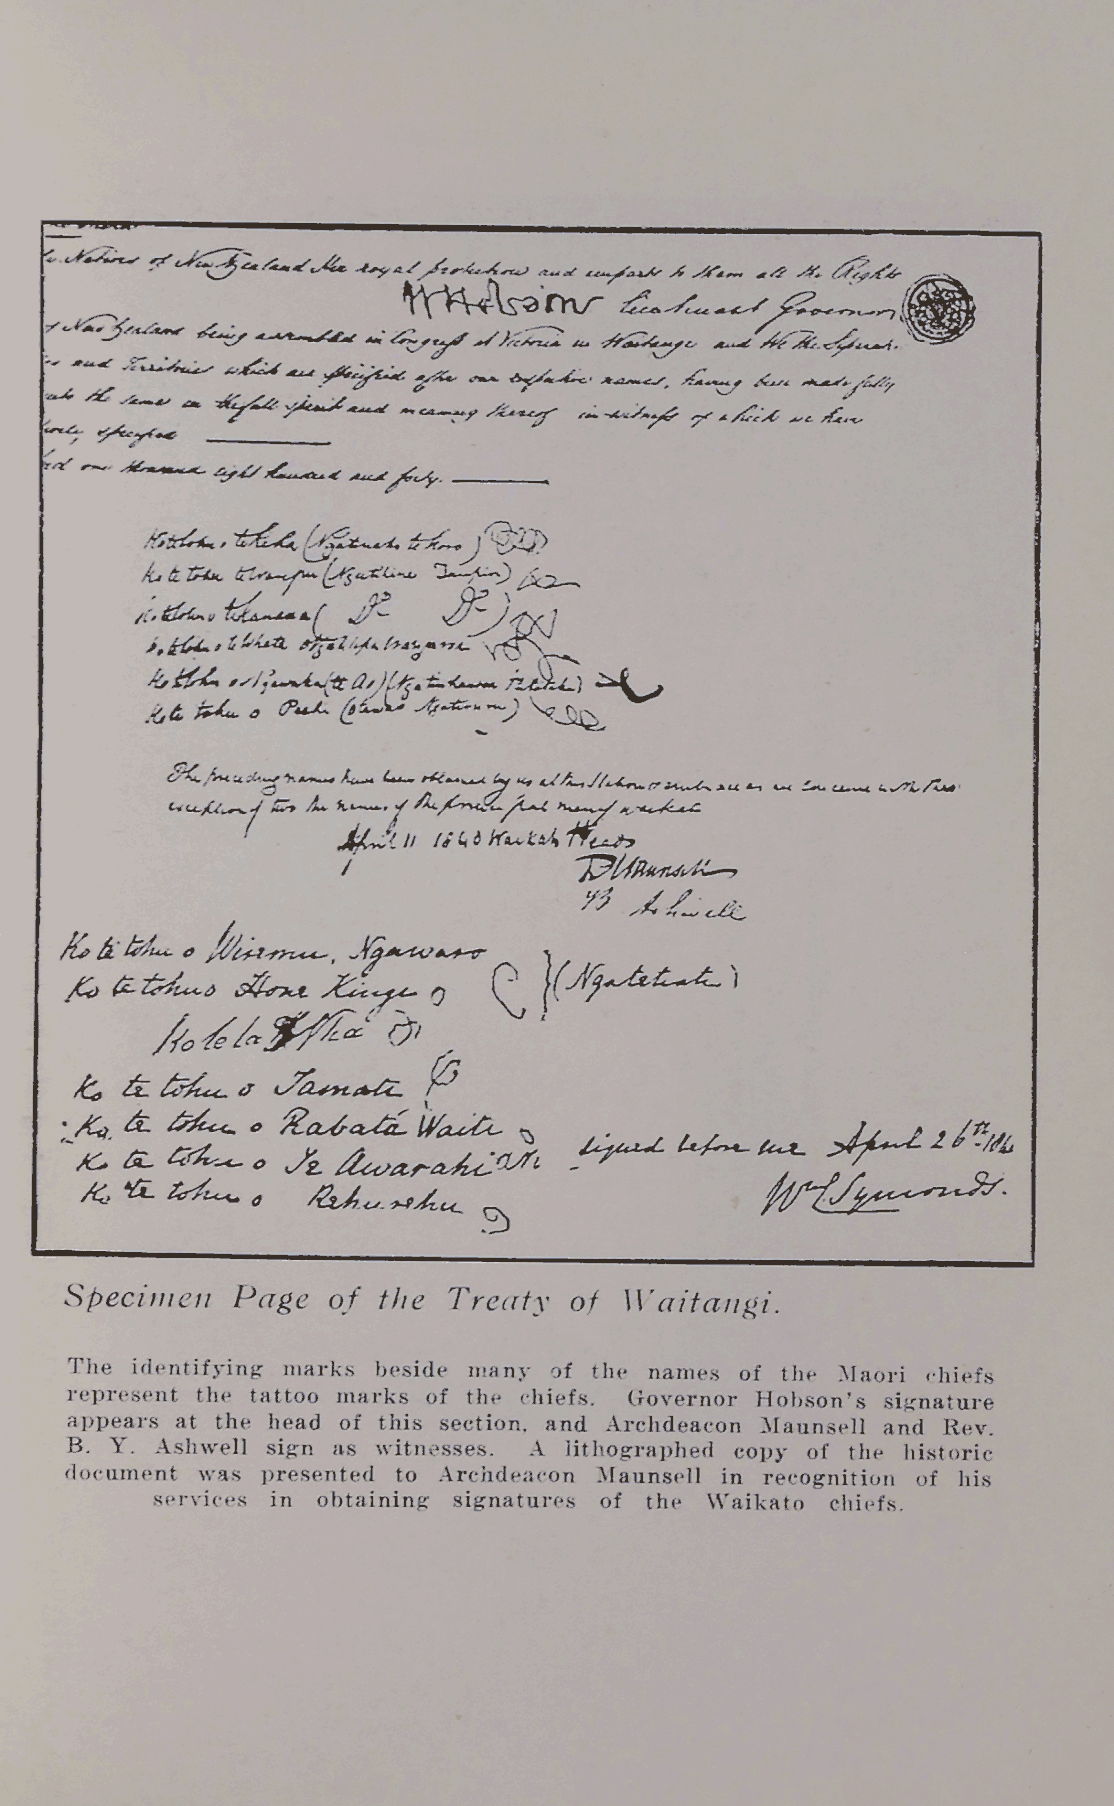 Natives of New Zealand Her royal protection and imparts to them all the Rights
W Hobson Lieutenant Governor
New Zealand being assembled in Congress at Victoria in Waitangi and We the Separate
and Territories which are specified after our respective names, having been made fully
the same in the full spirit and meaning thereof in witness of which we have
specified
one thousand eight hundred and forty.
Ko te tohu o
Ko te tohu
Ko te tohu o
Ko te tohu o te
Ko te tohu o
Ko te tohu o Peehi
The preceding names have been obtained by us at this Station
exception of two the names of the principal men of Waikato
April 11 1840 Waikato Heads
R Maunsell
Ashwell
Ko te tohu o Wiremu, Ngawaro
Ko te tohu o Hone Kingi (Ngateteata)
Ko te ta
Ko te tohu o Tamati
Ko te tohu o Rabata Waiti
signed before me April 26th
Ko te tohu o Te Awarahi
Ko te tohu o Rehurehu
Wm C Symonds.
Specimen Page of the Treaty of Waitangi.
The identifying marks beside many of the names of the Maori chiefs
represent the tattoo marks of the chiefs. Governor Hobson's signature
appears at the head of this section, and Archdeacon Maunsell and Rev.
B. Y. Ashwell sign as witnesses. A lithographed copy of the historic
document was presented to Archdeacon Maunsell in recognition of his
services in obtaining signatures of the Waikato chiefs.